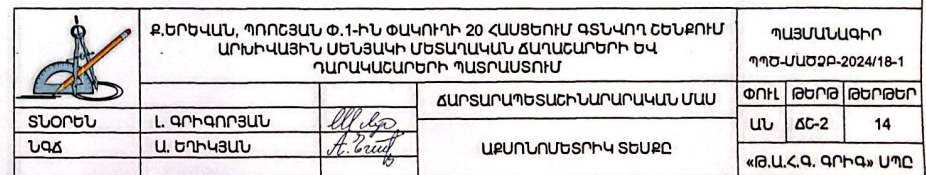 Ք.ԵՐԵՎԱՆ, ՊՌՈՇՅԱՆ Փ.1-ԻՆ ՓԱԿՈՒՂԻ 20 ՀԱՍՑԵՈՒՄ ԳՏՆՎՈՂ ՇԵՆՔՈՒՄ
ԱՐԽԻՎԱՅԻՆ ՍԵՆՅԱԿԻ ՄԵՏԱՂԱԿԱՆ ՃԱՂԱՇԱՐԵՐԻ ԵՎ
ԴԱՐԱԿԱՇԱՐԵՐԻ ՊԱՏՐԱՍՏՈՒՄ
ՊԱՅՄԱՆԱԳԻՐ
ՊՊԾ-ՄԱԾՁԲ-2024/18-1
ՃԱՐՏԱՐԱՊԵՏԱՇԻՆԱՐԱՐԱԿԱՆ ՄԱՍ
ՓՈՒԼ ԹԵՐԹ ԹԵՐԹԵՐ
ՏՆՕՐԵՆ Լ. ԳՐԻԳՈՐՅԱՆ
ԱՆ ՃՇ-2 14
ՆԳՃ Ա. ԵՂԻԿՅԱՆ
ԱՔՍՈՆՈՄԵՏՐԻԿ ՏԵՍՔԸ
«Թ.Ա.Հ.Գ. ԳՐԻԳ» ՍՊԸ